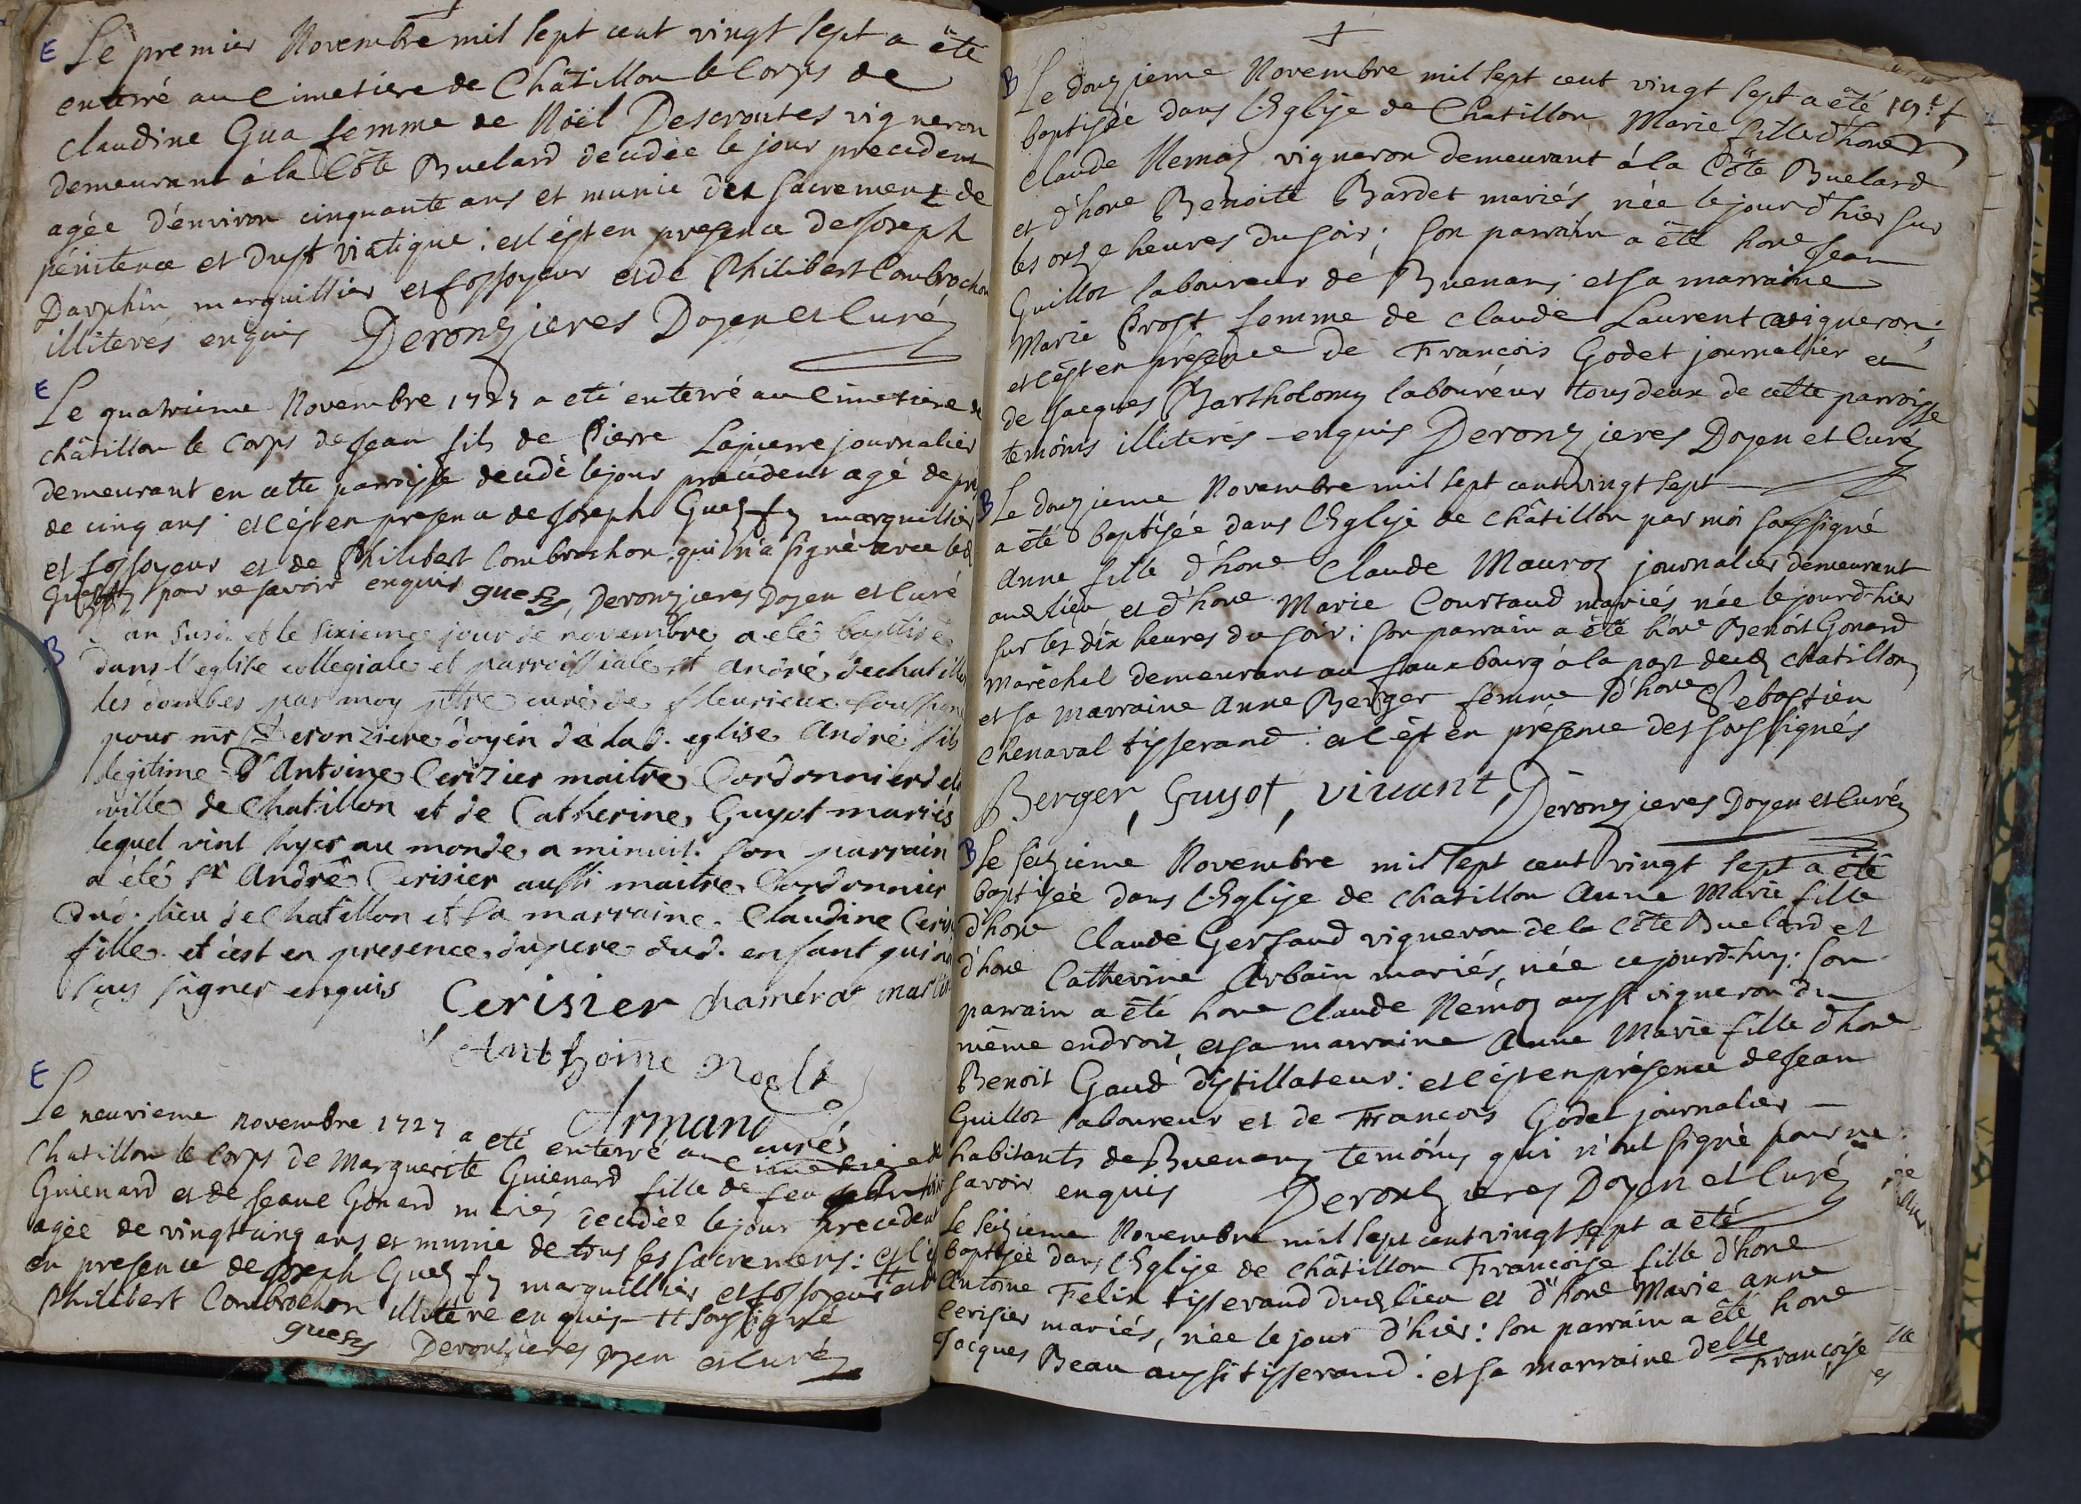 E Le premier Novembre mil sept cent vingt sept a été
enterré au Cimetiere de Châtillon le Corps de
Claudine Gua femme de Noël Descroutes vigneron
demeurant à la Côte Buelard decedée le jour precedent
agée d'environ cinquante ans et munie des sacrements de
pénitence et du st viatique : et c'ést en presence de Joseph
Dauphin marguillier et fossoyeur et de Philibert Combrochon
illiterés enquis Deronzieres Doyen et Curé
E Le quatrieme Novembre 1727 a eté enterré au Cimetiere de
châtillon le Corps de Jean fils de Pierre Lapierre journalier
demeurant en cette parroisse decedé le jour precedent agé de près
de cinq ans et c'ést en presence de Joseph marguillier
et fossoyeur et de Philibert Combrochon qui n'a signé avec led
pour ne savoir enquis Deronzieres Doyen et Curé
B an susd. et le sixieme jour de novembre a eté baptisé
dans l'eglise collegiale et parroissiale st André de chatillon
les dombes par moy ptre curé de fleurieux soussigné
pour mr Deronziere doyen de lad. eglise André fils
legitime d'Antoine Cerizier maitre Cordonnier de
ville de Chatillon et de Catherine Guyot mariés
lequel vint hyer au monde a minuit. son parrain
a été sr André Cerisier aussi maitre Cordonnier
dud. lieu de Chatillon et sa marraine Claudine Ceris
fille. et c'est en presence du pere dud. enfant qui
signer enquis Cerisier chaméra
Anthoine
Armand
curé
E Le neuvieme novembre 1727 a eté enterré au Cimetiere de
Chatillon le Corps de Marguerite Guienard fille de feu
Guienard et de Jeane Gonard mariés decedée le jour precedent
agée de vingt cinq ans et munie de tous ses sacremens : et c'ést
en presence de Joseph marguillier et fossoyeur et de
Philibert Combrochon illitere enquis soussigné
Deronzieres Doyen et Curé
B Le douzieme Novembre mil sept cent vingt sept a été
baptisée dans l'Eglise de Chatillon Marie fille d'hone
Claude Nemoz vigneron demeurant à la Côte Buelard
et d'hone Benoite Bardet mariés née le jour d'hier sur
les onze heures du soir ; son parrain a été hone Jean
Guillot laboureur de Buenans et sa marraine
Marie Prost femme de Claude Laurent vigneron ;
et c'ést en présence de François Godet journalier et
de Jacques Bartholomy laboureur tous deux de cette parroisse
temoins illiterés enquis Deronzieres Doyen et Curé
B Le douzieme Novembre mil sept cent vingt sept
a été baptisée dans l'Eglise de châtillon par moi soussigné
Anne fille d'hone Claude Mauroz journalier demeurant
aud lieu et d'hone Marie Courtaud mariés née le jour d'hier
sur les dix heures du soir ; son parrain a été hone Benoit Gonard
maréchal demeurant au fauxbourg à la part dud chatillon
et sa marraine Anne Berger femme d'hone Sebastien
Chenaval tisserand : et c'ést en présence des soussignés
Berger, Guyot, vivant, Deronzieres Doyen et Curé
B Le seizieme Novembre mil sept cent vingt sept a été
baptisée dans l'Eglise de chatillon Anne Marie fille
d'hone Claude Gersaud vigneron de la Côte Buelard et
d'hone Catherine Arbain mariés, née ce jourd-huy : son
parrain a été hone Claude Nemoz aussi vigneron du
même endroit, et sa marraine Anne Marie fille d'hone
Benoit Gaud distillateur : et c'ést en présence de Jean
Guillot laboureur et de François Godet journalier
habitants de Buenans temoins qui n'ont signé pour ne
savoir enquis Deronzieres Doyen et Curé
Le seizieme Novembre mil sept cent vingt sept a été
baptisée dans l'Eglise de châtillon Françoise fille d'hone
Antoine Felix tisserand dud lieu et d'hone Marie Anne
Cerisier mariés, née le jour d'hier : son parrain a été hone
Jacques Beau aussi tisserand : et sa marraine delle Françoise